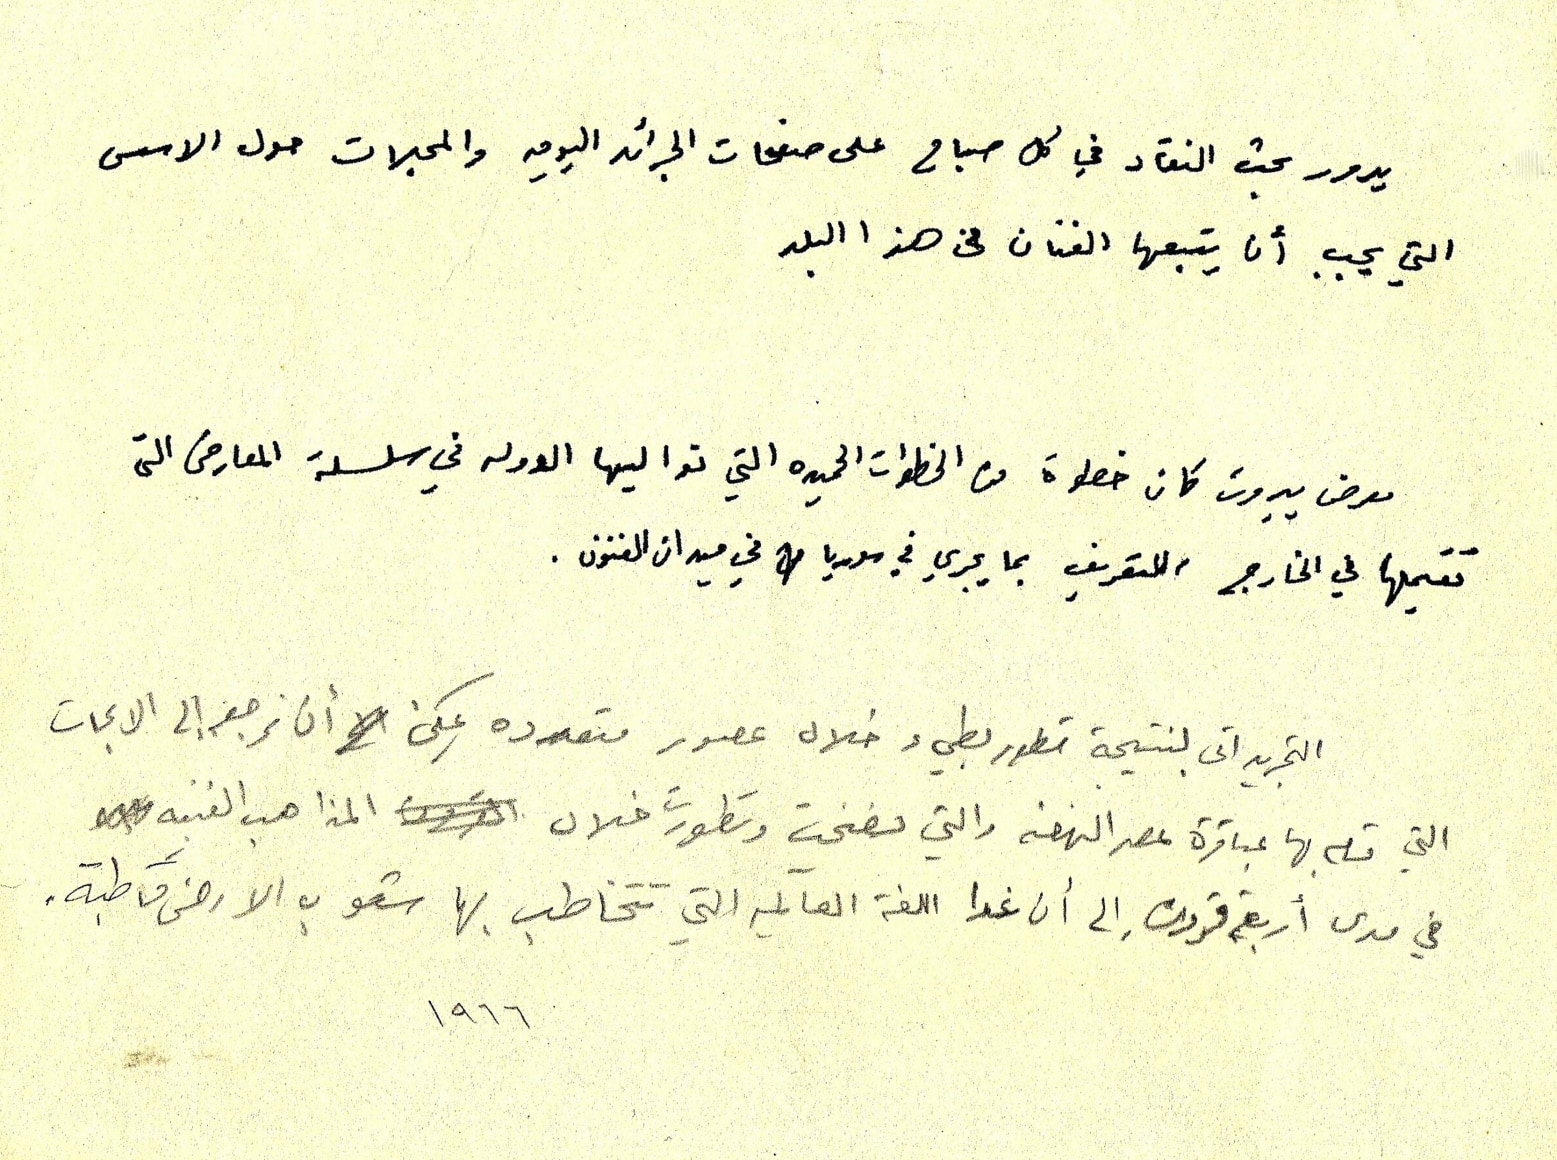 يدور بحث النقاد في كل صباح على صفحات الجرائد اليوميه والمجلات حول الاسس
التي يجب أن يتبعها الفنان في هذا البلد
معرض بيروت كان خطوة من الخطوات الحميده التي تواليها الدوله في سلسلة المعارض التي
تقيمها في الخارج للتعريف بما يجري في سوريا في ميدان الفنون .
التجريد اتى لنتيجة تطور بطيء خلال عصور متعدده يمكن أن نرجعه إلى الابحاث
التي قام بها عباقرة عصر النهضه والتي نضجت وتطورت خلال المذاهب الفنيه
في مدى أربعة قرون إلى أن غدا اللغة العالميه التي تتخاطب بها شعوب الارض قاطبة .
١٩٦٦